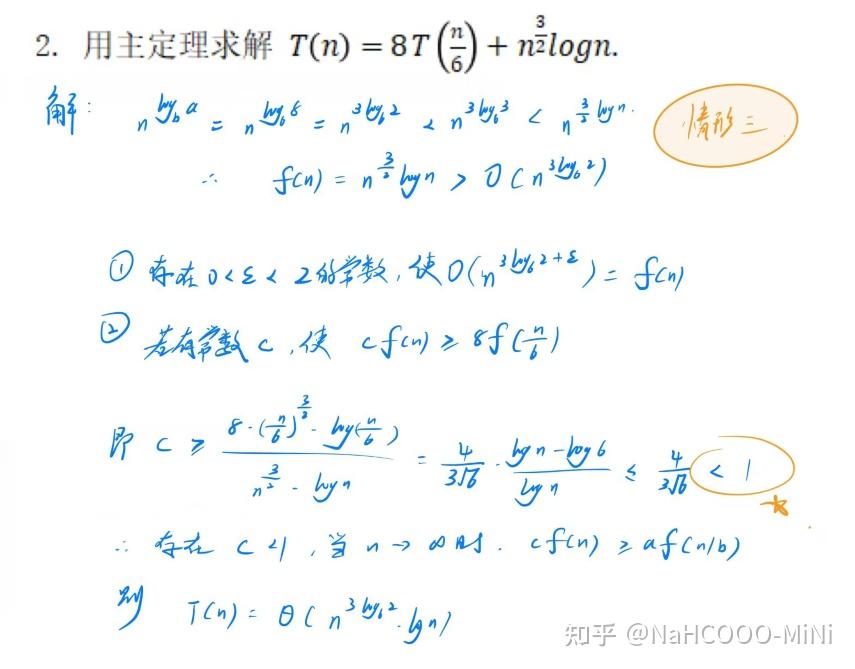 2. 用主定理求解 T(n) = 8T(n/6) + n^(3/2)logn.
解: n^(log_b a) = n^(log_6 8) = n^(3log_6 2) < n^(3log_6 3) < n^(3/2) logn.
情形三
∴ f(n) = n^(3/2) logn > O(n^(3log_6 2))
① 存在 0<ε<2的常数,使O(n^(3log_6 2+ε)) = f(n)
② 若有常数c,使 cf(n) ≥ 8f(n/6)
即 c ≥ (8·(n/6)^(3/2)·log(n/6))/(n^(3/2)·logn) = 4/(3√6)·(logn-log6)/logn ≤ 4/(3√6) < 1
∴ 存在 c<1,当n→∞时. cf(n) ≥ af(n/b)
则 T(n) = θ(n^(3log_6 2)·lgn)
知乎 @NaHCOOO-MiNi